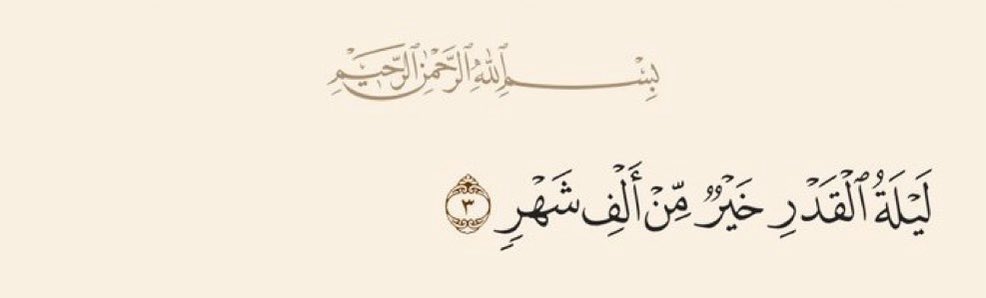 بِسْمِ ٱللَّهِ ٱلرَّحْمَٰنِ ٱلرَّحِيمِ
لَيْلَةُ ٱلْقَدْرِ خَيْرٌ مِّنْ أَلْفِ شَهْرٍ ٣